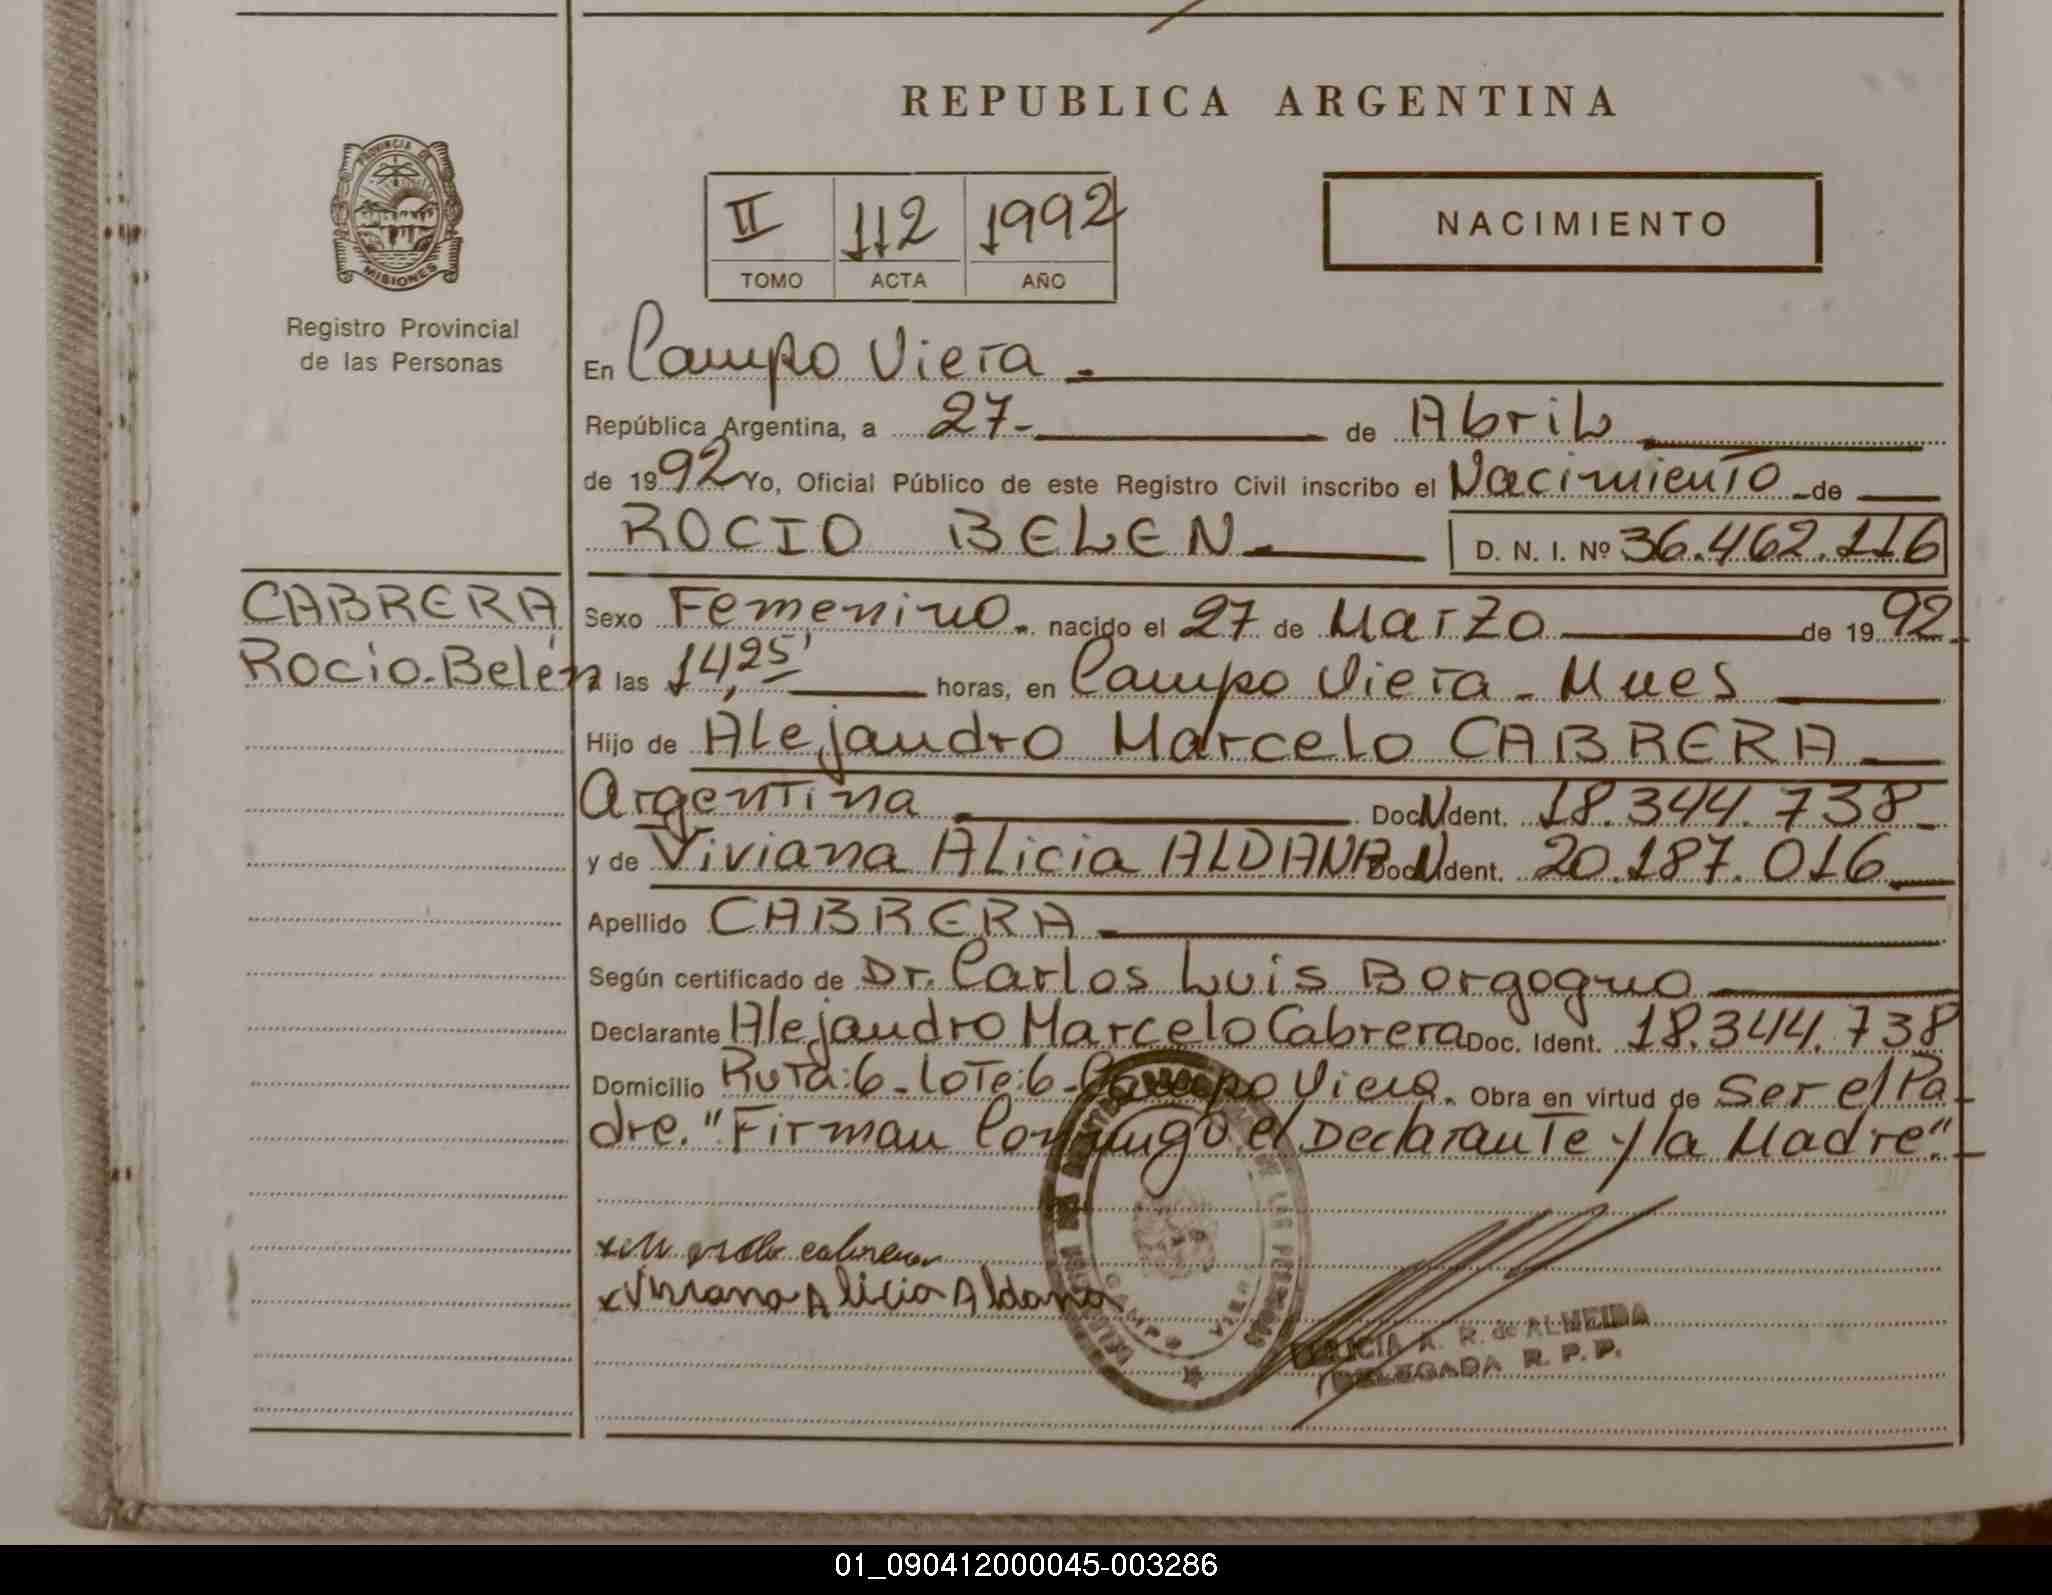 REPUBLICA ARGENTINA
PROVINCIA DE
MISIONES
Registro Provincial
de las Personas
II 112 1992
TOMO ACTA AÑO
NACIMIENTO
En Campo Viera.
República Argentina, a 27- de Abril
de 1992 Yo, Oficial Público de este Registro Civil inscribo el Nacimiento de
ROCIO BELEN D. N. I. Nº 36.462.116
CABRERA
Rocio-Belén
Sexo Femenino. nacido el 27 de Marzo de 1992
a las 14,25' horas, en Campo Viera - Mnes
Hijo de Alejandro Marcelo CABRERA
Argentina Doc. Ident. 18.344.738
y de Viviana Alicia ALDANA Doc. Ident. 20.187.016
Apellido CABRERA
Según certificado de Dr. Carlos Luis Borgogno
Declarante Alejandro Marcelo Cabrera Doc. Ident. 18.344.738
Domicilio Ruta:6-Lote:6-Campo Viera. Obra en virtud de Ser el Pa
dre. "Firman Conmigo el Declarante y la Madre".
x cabrera
x Viviana Alicia Aldana
CAMPO VIERA
A. R. de ALMEIDA
DELEGADA R. P. P.
01_090412000045-003286